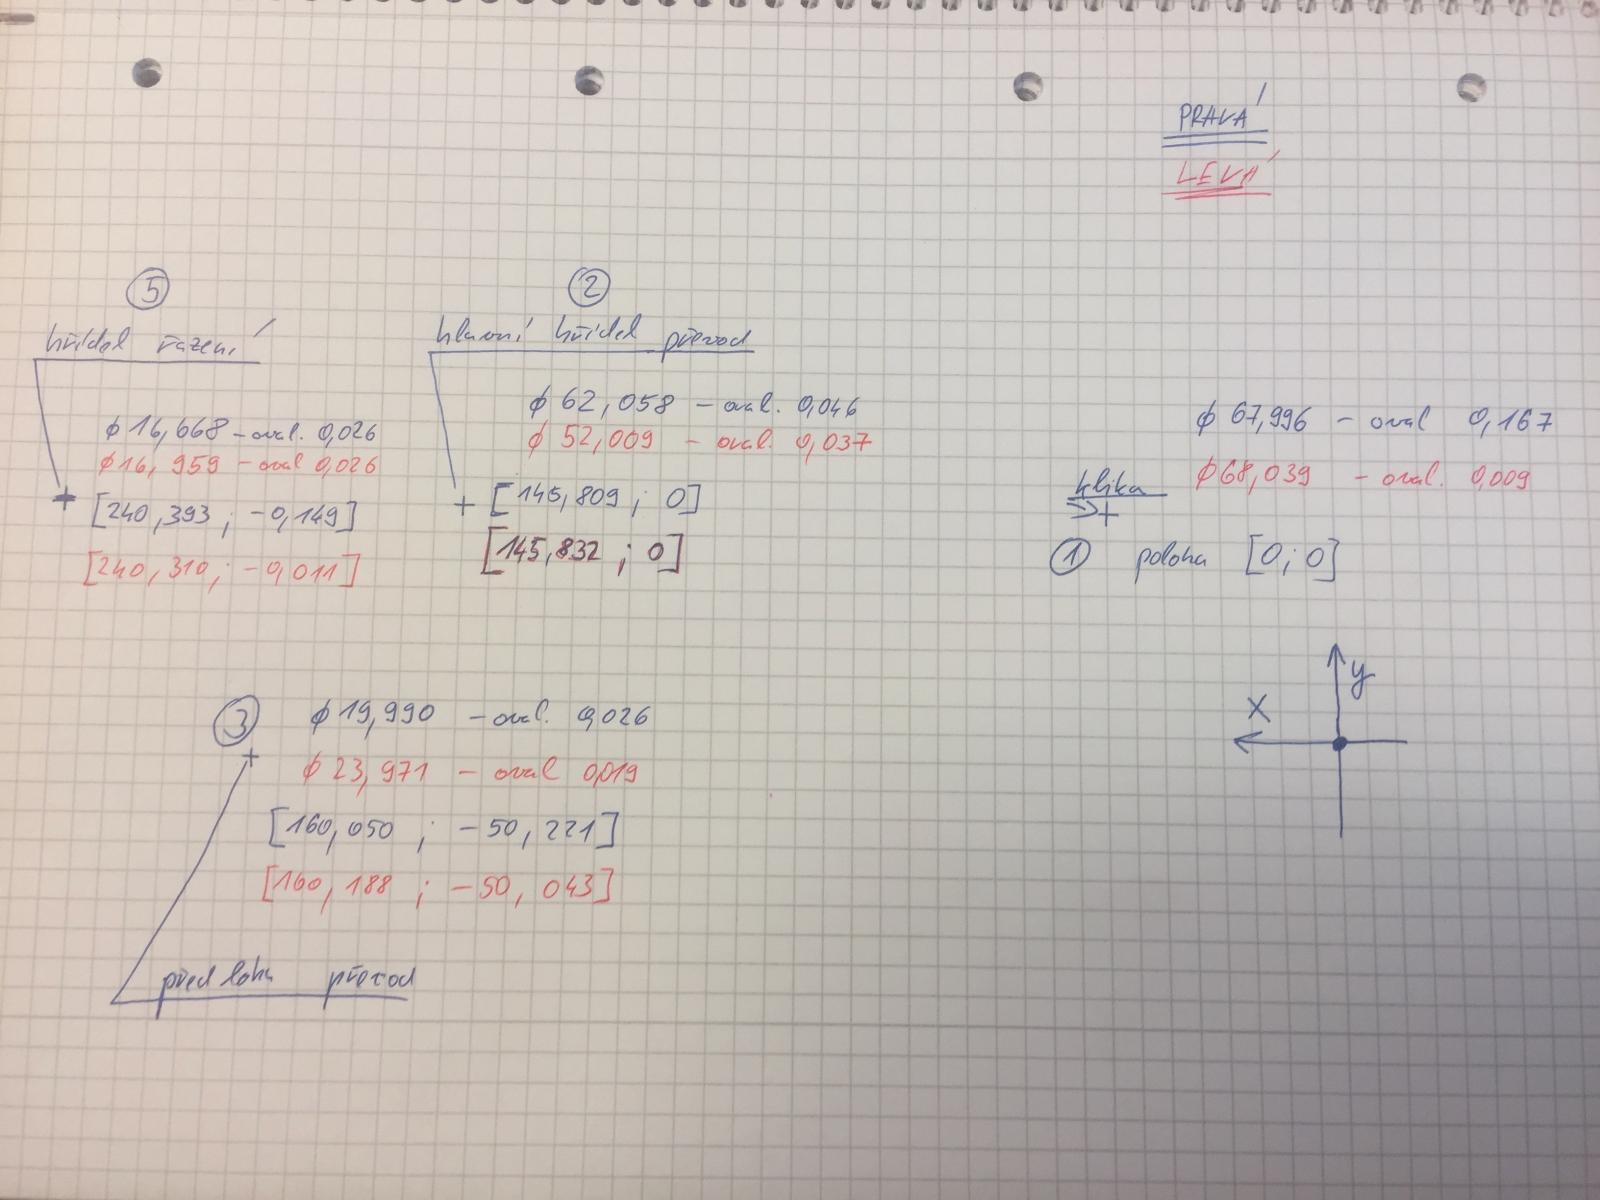 PRAVÁ
LEVÁ
5
hřídel řazení
ϕ 16,668 - oval. 0,026
ϕ 16,959 - oval 0,026
[240,393 ; -0,149]
[240,310; -0,011]
2
hlavní hřídel převod
ϕ 62,058 - oval. 0,046
ϕ 52,009 - oval. 0,037
[145,809 ; 0]
[145,832 ; 0]
ϕ 67,996 - oval 0,167
ϕ 68,039 - oval. 0,009
klika
1 poloha [0; 0]
y
X
3
ϕ 19,990 - oval. 0,026
ϕ 23,971 - oval 0,019
[160,050 ; -50,221]
[160,188 ; -50,043]
předloha převod